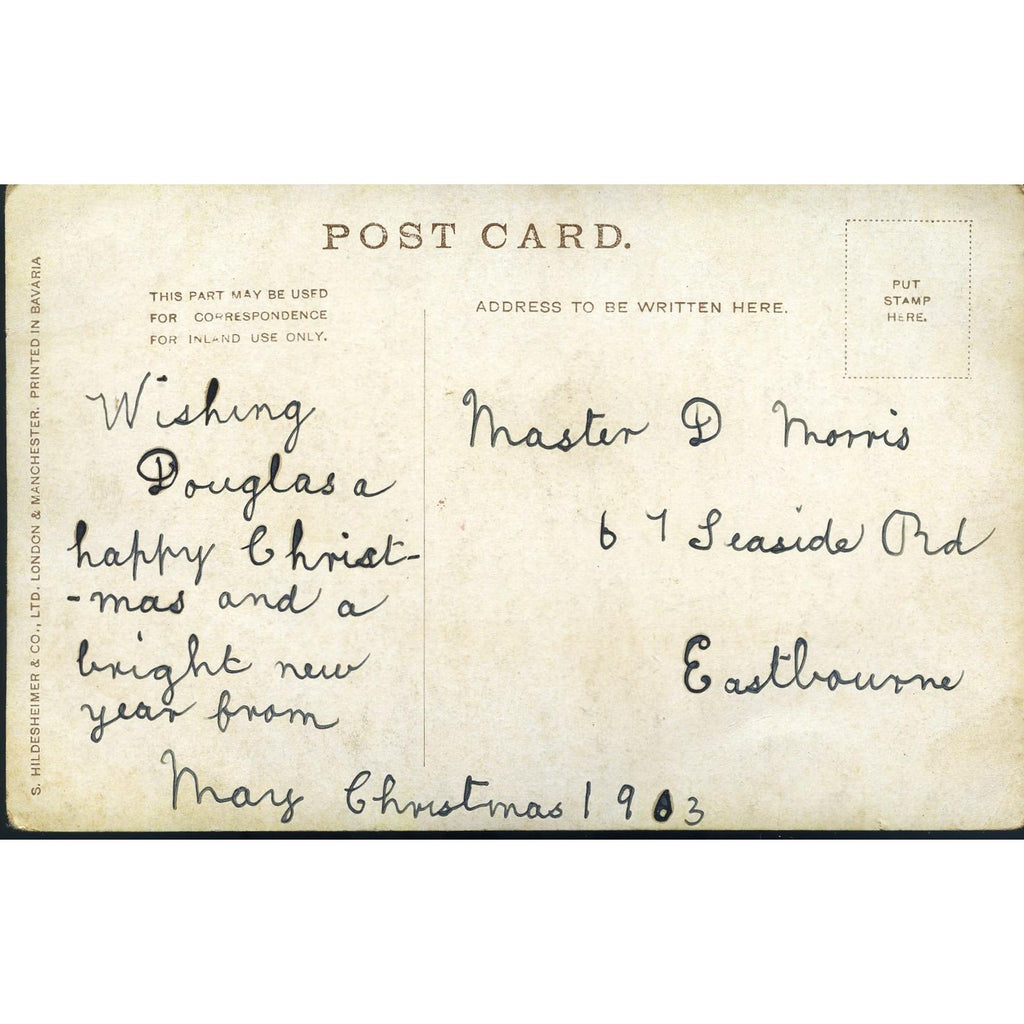 POST CARD.
THIS PART MAY BE USED
FOR CORRESPONDENCE
FOR INLAND USE ONLY.
ADDRESS TO BE WRITTEN HERE.
PUT
STAMP
HERE.
S. HILDESHEIMER & CO., LTD. LONDON & MANCHESTER. PRINTED IN BAVARIA
Wishing
Douglas a
happy Christ-
-mas and a
bright new
year from
May Christmas 1903
Master D Morris
67 Seaside Rd
Eastbourne